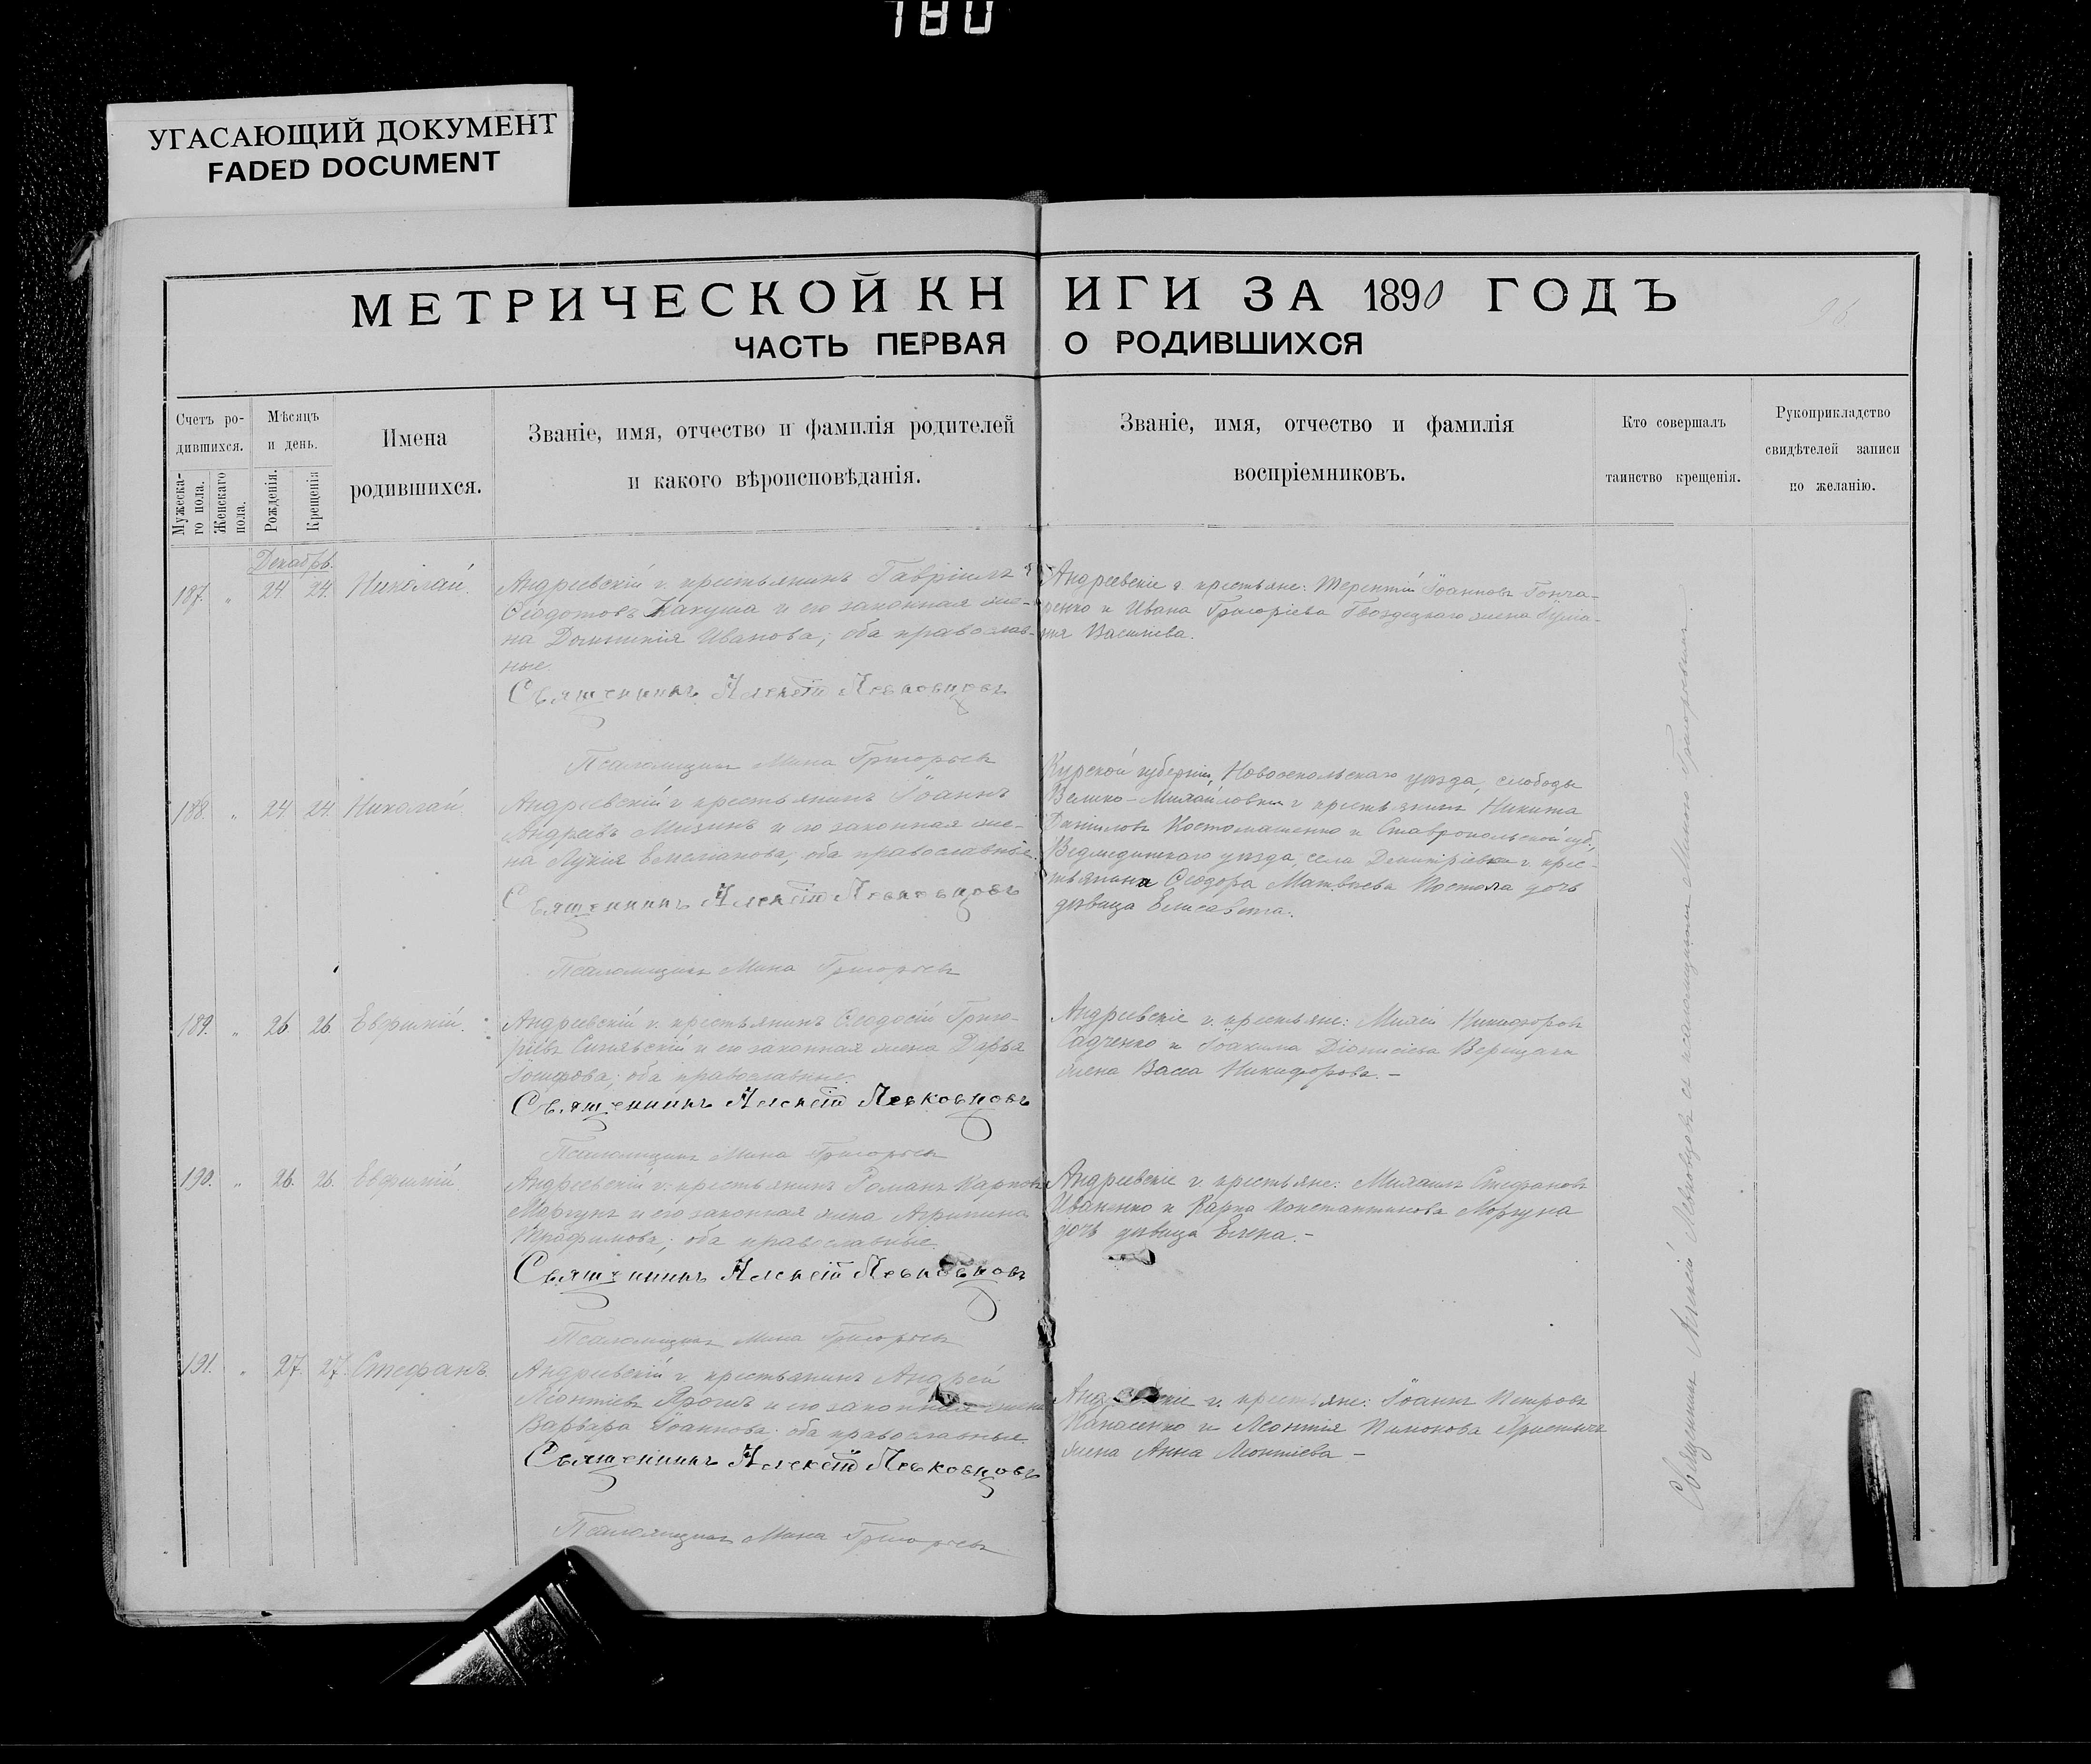 180
УГАСАЮЩИЙ ДОКУМЕНТ
FADED DOCUMENT
МЕТРИЧЕСКОЙ КНИГИ ЗА 1890 ГОДЪ
ЧАСТЬ ПЕРВАЯ О РОДИВШИХСЯ
Счетъ ро-
дившихся.
Мужеска-
го пола.
Женскаго
пола.
Мѣсяцъ
и день.
Рожденія.
Крещенія
Имена
родившихся.
Званіе, имя, отчество и фамилія родителей
и какого вѣроисповѣданія.
Званіе, имя, отчество и фамилія
воспріемниковъ.
Кто совершалъ
таинство крещенія.
Рукоприкладство
свидѣтелей записи
по желанію.
Декабрь.
187. " 24. 24. Николай.
Андреевскій г. крестьянинъ Гавріилъ
Ѳеодотовъ Какуша и его законная же-
на Домникія Иванова; оба православ-
ные.
Священникъ Алексій Левковцовъ
Псаломщикъ Мина Григорьевъ
Андреевскіе г. крестьяне: Терентій Іоанновъ Гонча-
ренко и Ивана Григоріева Гвоздецкаго жена Іулiа-
нія Василіева.
188. " 24 24. Николай
Андреевскій г. крестьянинъ Іоаннъ
Андреевъ Мизинъ и его законная же-
на Лукія Емеліанова; оба православные.
Священникъ Алексій Левковцовъ
Псаломщикъ Мина Григорьевъ
Курской губерніи, Новооскольскаго уѣзда, слободы
Велико-Михайловки г. крестьянинъ Никита
Даніиловъ Костомашенко и Ставропольской губ.,
уѣзда, села Димитріевки г. крес-
тьянина Ѳеодора Матвѣева Постола дочь
дѣвица Елисавета.
189. " 26 26. Евѳимій.
Андреевскій г. крестьянинъ Ѳеодосій Григо-
ріевъ Синявскій и его законная жена Дарья
Іосифова; оба православные.
Священникъ Алексій Левковцовъ
Псаломщикъ Мина Григорьевъ
Андреевскіе г. крестьяне: Никифоровъ
Садченко и Іоакима Діонисіева Верещаки
жена Васса Никифорова. –
190. " 26. 26. Евѳимій
Андреевскій г. крестьянинъ Романъ Карповъ
Моргунъ и его законная жена Агрипина
Трофимова; оба православные.
Священникъ Алексій Левковцовъ
Псаломщикъ Мина Григорьевъ
Андреевскіе г. крестьяне: Михаилъ Стефановъ
Иваненко и Карпа Константинова Моргуна
дочь дѣвица Елена. –
191. " 27. 27. Стефанъ.
Андреевскій г. крестьянинъ Андрей
Леонтіевъ и его законная жена
Варвара Іоаннова; оба православные.
Священникъ Алексій Левковцовъ
Псаломщикъ Мина Григорьевъ
г. крестьяне: Іоаннъ Петровъ
Панасенко и Леонтія
жена Анна Леонтіева –
Священникъ Алексій Левковцовъ съ псаломщикомъ Миною Григоровымъ.